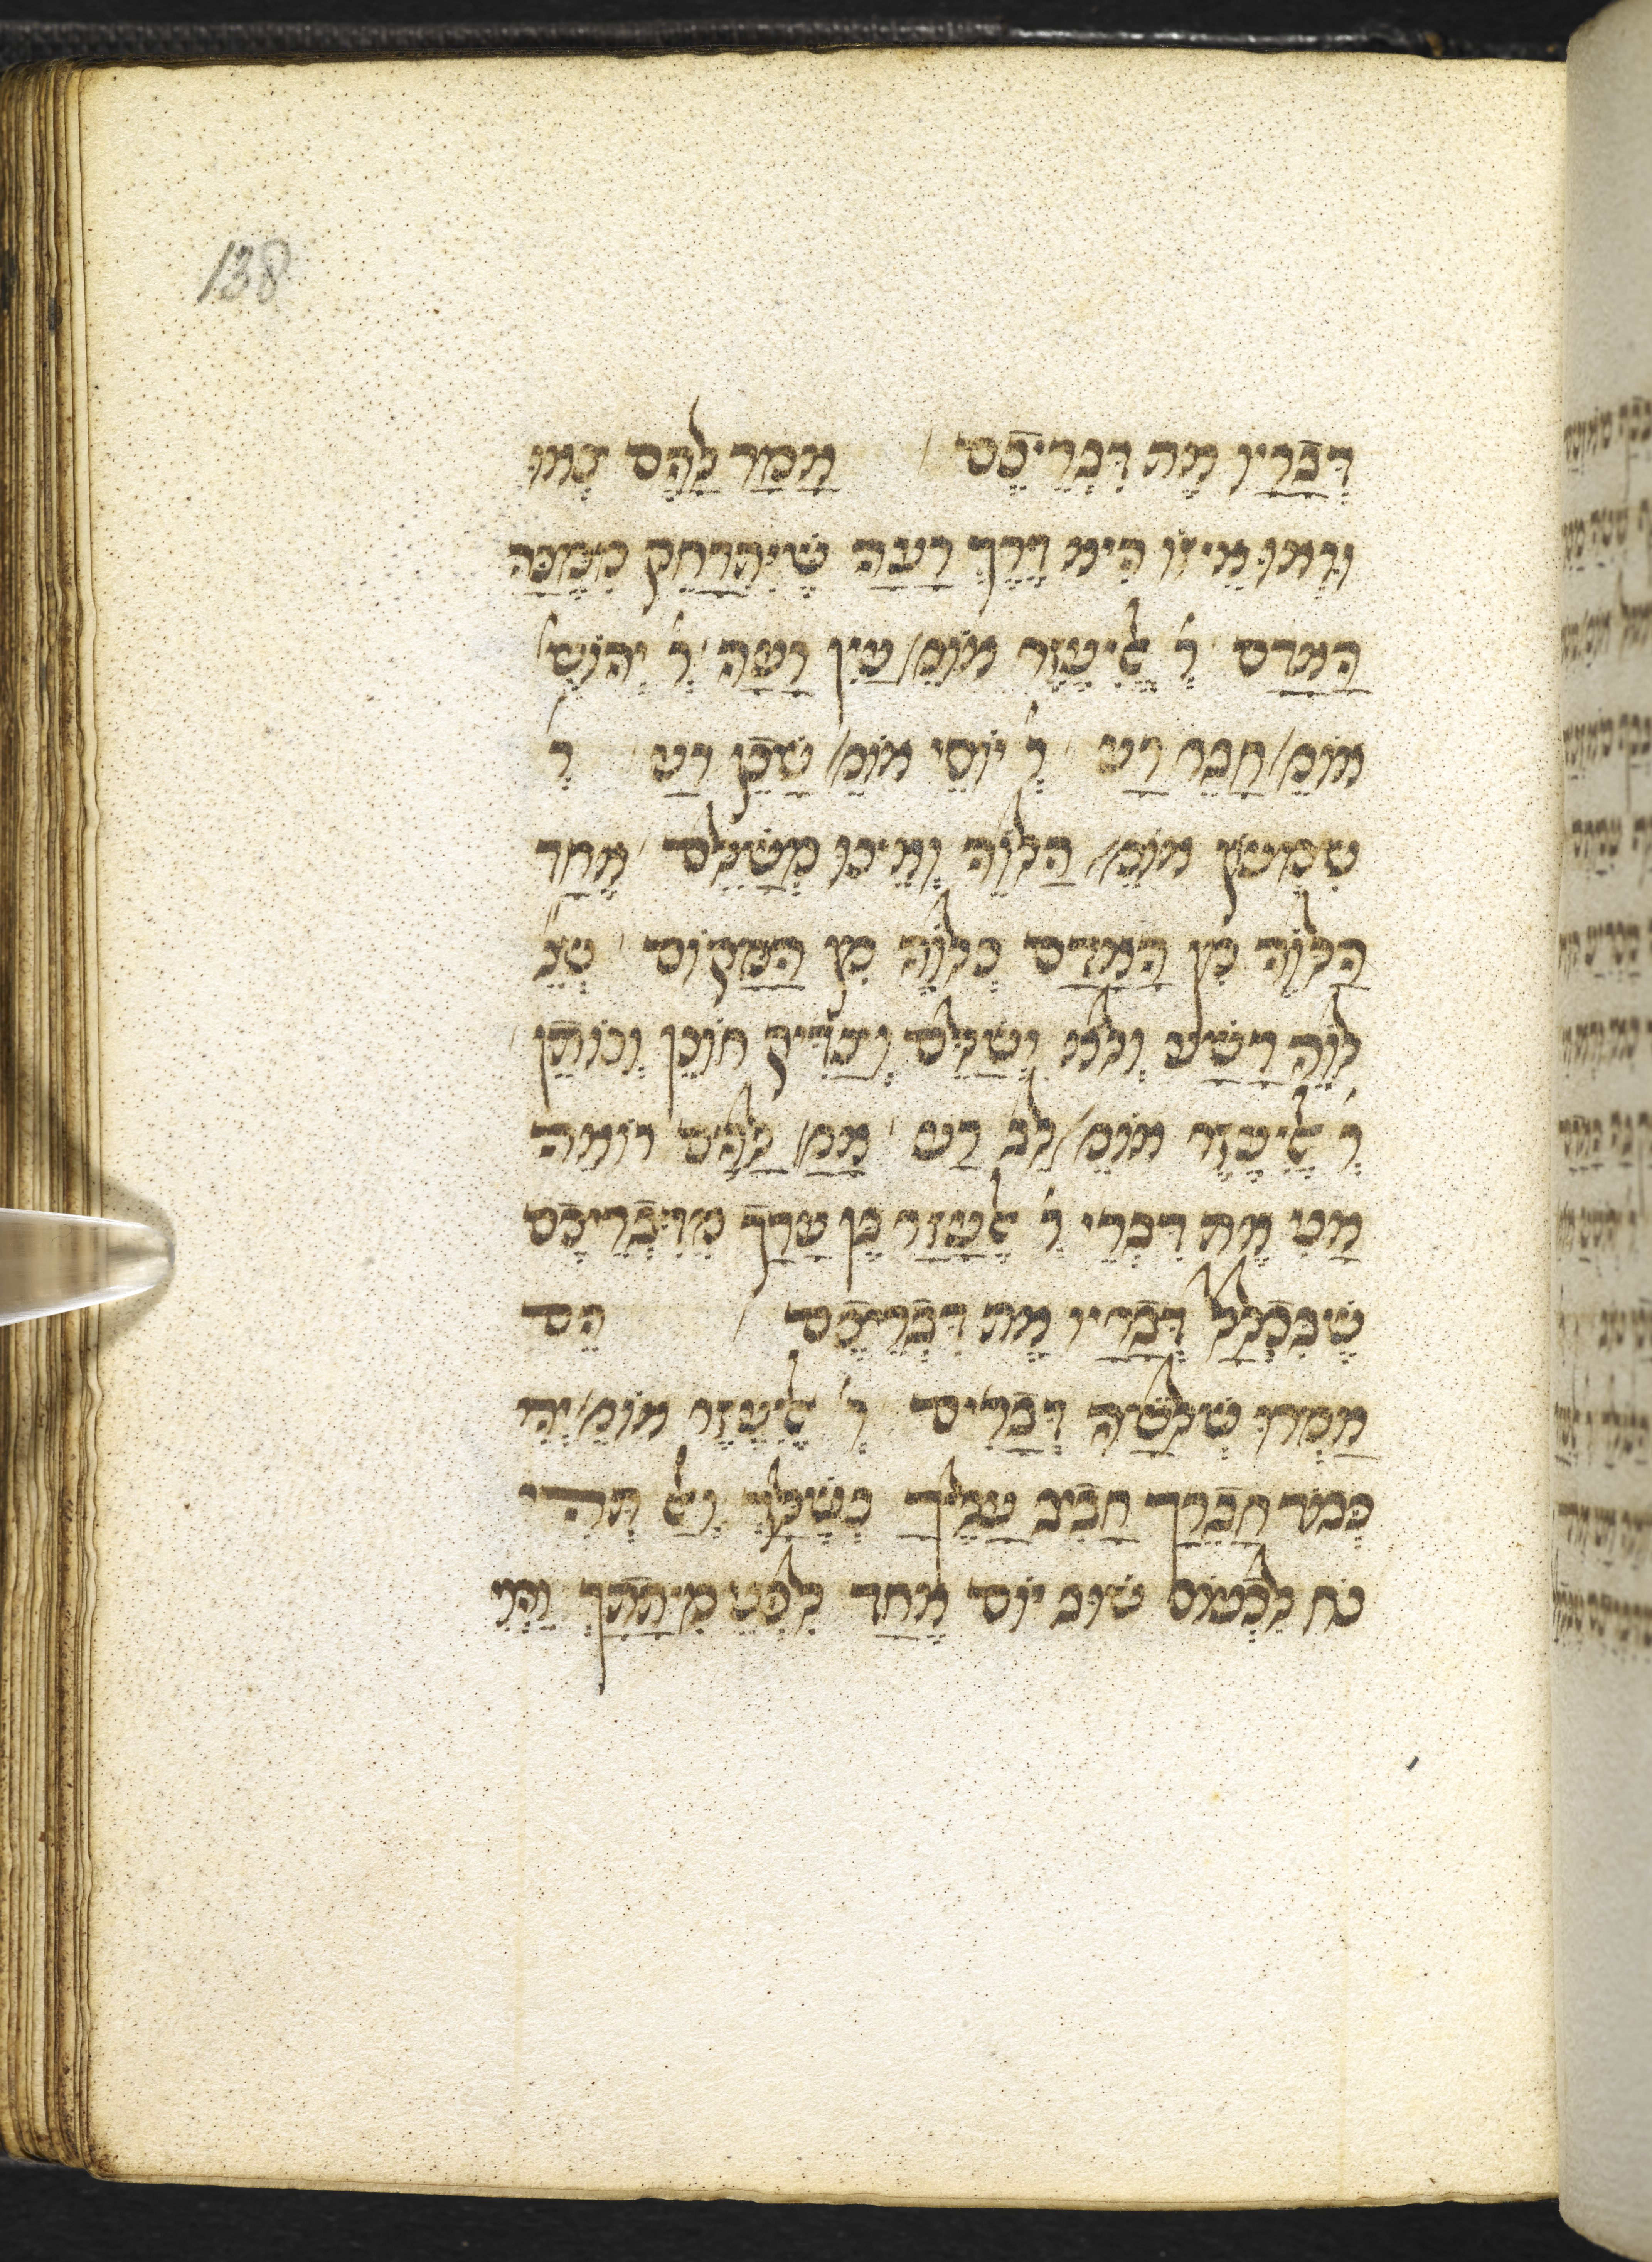 138
דבריו את דבריכם / אמר להם צאו
וראו איזו היא דרך רעה שיתרחק ממנה
האדם ר' אליעזר אומ' עין רעה ר' יהושע
אומ' חבר רע ר' יוסי אומ' שכן רע ר'
שמעון אומ' הלוה ואינו משלם אחד
הלוה מן האדם כלוה מן המקום שנ'
לוה רשע ולא ישלם וצדיק חונן ונותן
ר' אליעזר אומ' לב רע אמ' להם רואה
אני את דברי ר' אלעזר בן ערך מדבריכם
שבכלל דבריו את דבריכם / הם
אמרו שלשה דברים ר' אליעזר אומ' יהי
כבוד חברך חביב עליך כשלך ואל תהי
נח לכעוס שוב יום אחד לפני מיתתך